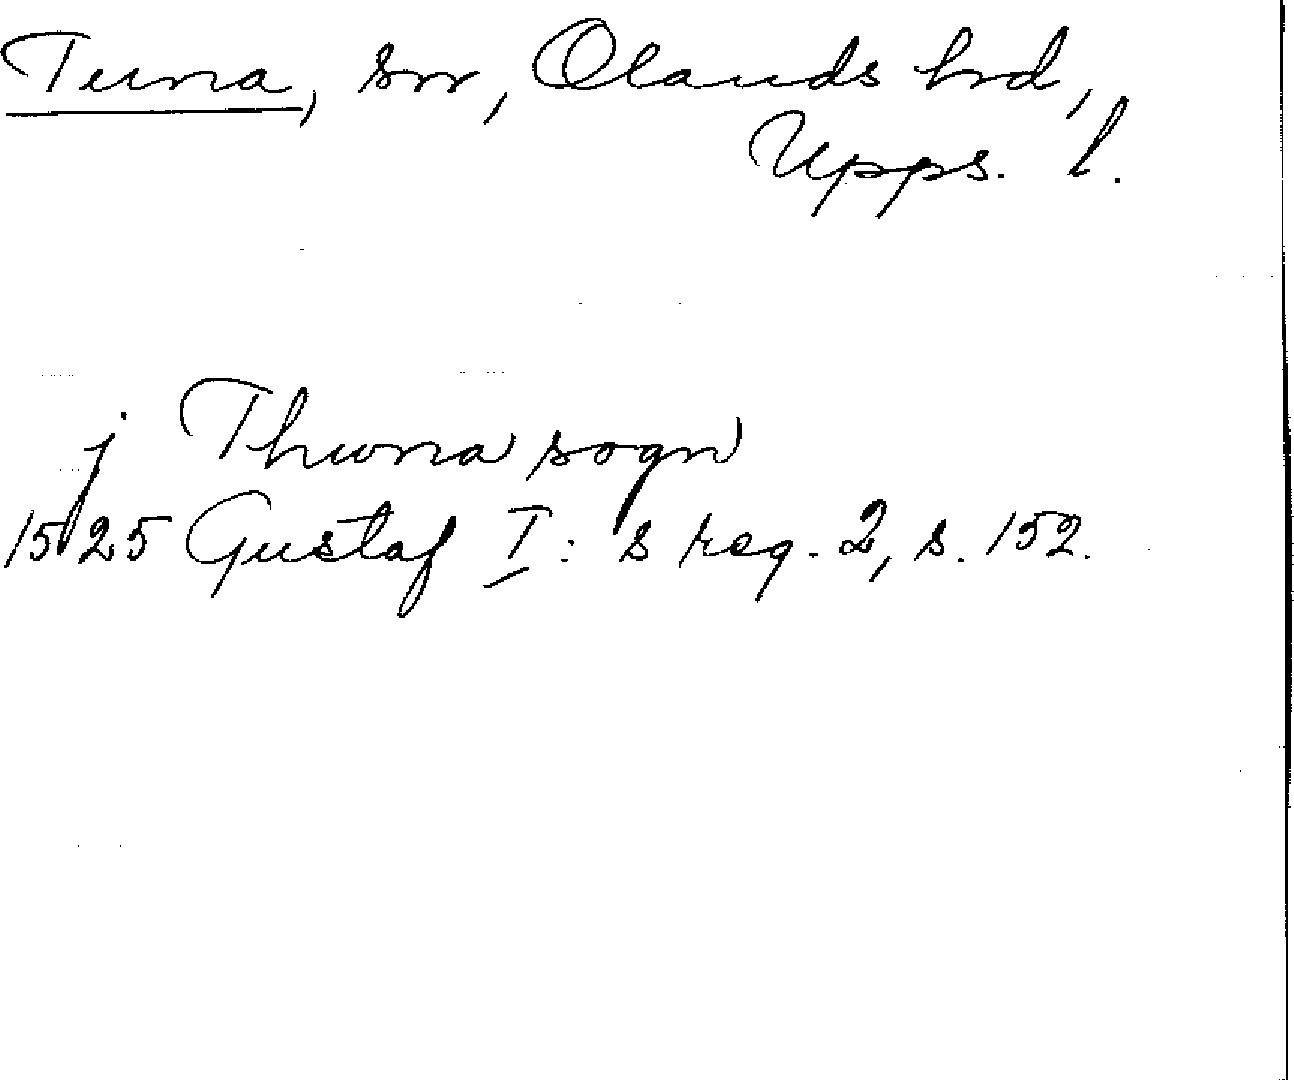 Tuna, sn, Olands hd,
Upps. l.
j Thuna sogn
1525 Gustaf I:s reg. 2, s. 152.